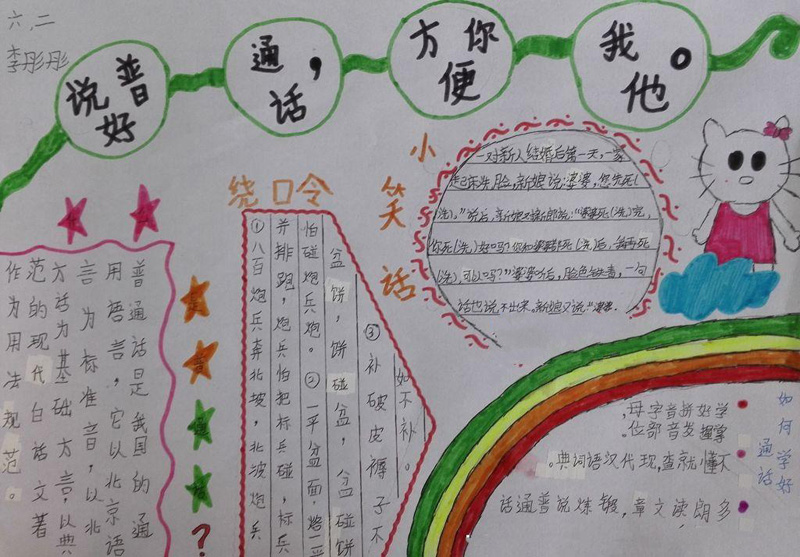 六、二
李彤彤
说好普
通话,
方便你
我他。
小笑话
一对新人结婚后第一天,一家
起床洗脸,新娘说:婆婆,您先死(
洗)。"说后,新娘又对新郎说:"婆婆死(洗)完,
你死(洗)好吗?你和婆婆都死(洗)后,我再死
(洗),可以吗?"婆婆听后,脸色铁青,一句
话也说不出来。新娘又说:"婆婆.
绕口令
①八百炮兵奔北坡,北坡炮兵
并排跑,炮兵怕把标兵碰,标兵
怕碰炮兵炮。②一平盆面烙一平
盆饼,饼碰盆,盆碰饼
③补破皮褥子不
如不补。
?
普通话是我国的通
用语言,它以北京语
言为标准音,以北
方话为基础方言,以典
范的现代白话文著
作为用法规范。
如何学好
通话
学好拼音字母,
掌握发音部位。
不懂就查,现代汉语词典。
多朗读,文章,锻炼说普通话